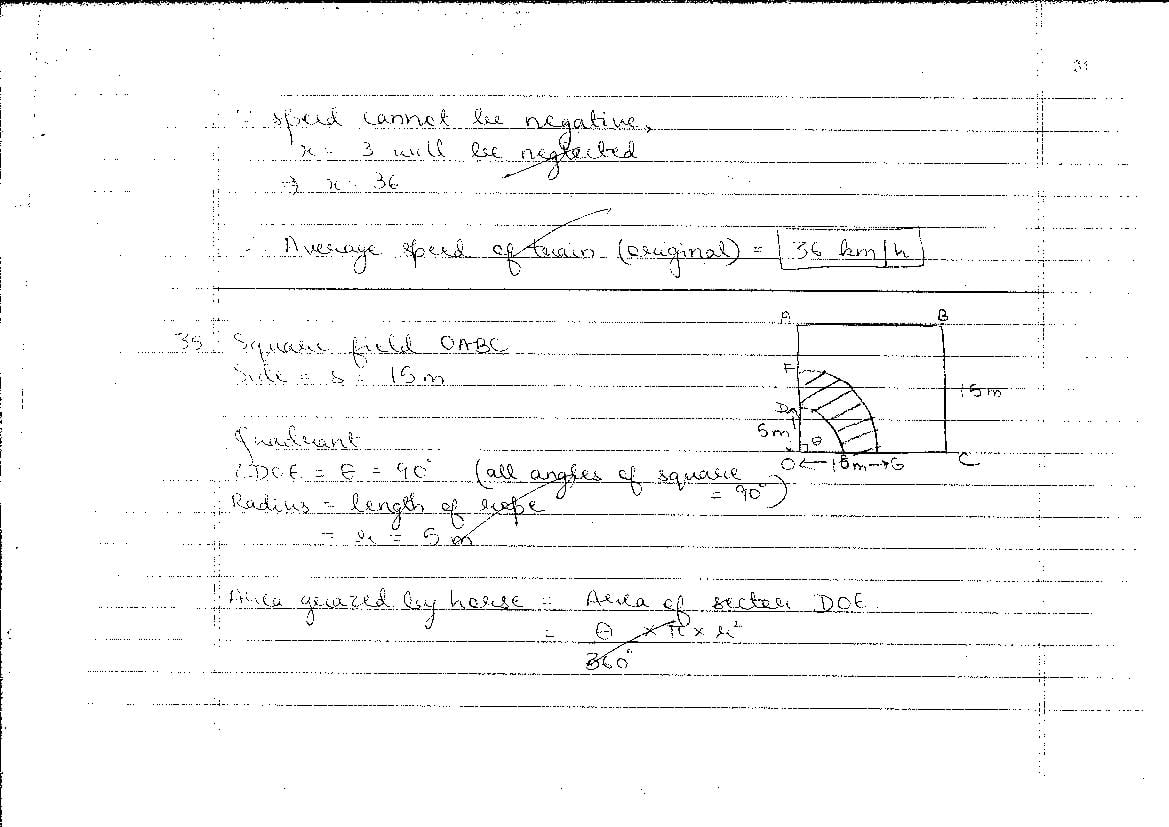 31
∵ speed cannot be negative,
x = 3 will be neglected
⇒ x = 36
∴ Average speed of train (original) = 36 km/h
35. Square field OABC
Side = s = 15 m
A B
F
15 m
D
5 m θ
O ← 10 m → G C
Quadrant
∠DOE = θ = 90° (all angles of square
= 90°)
Radius = length of rope
= r = 5 m
Area grazed by horse = Area of sector DOE
= θ × π × r²
360°